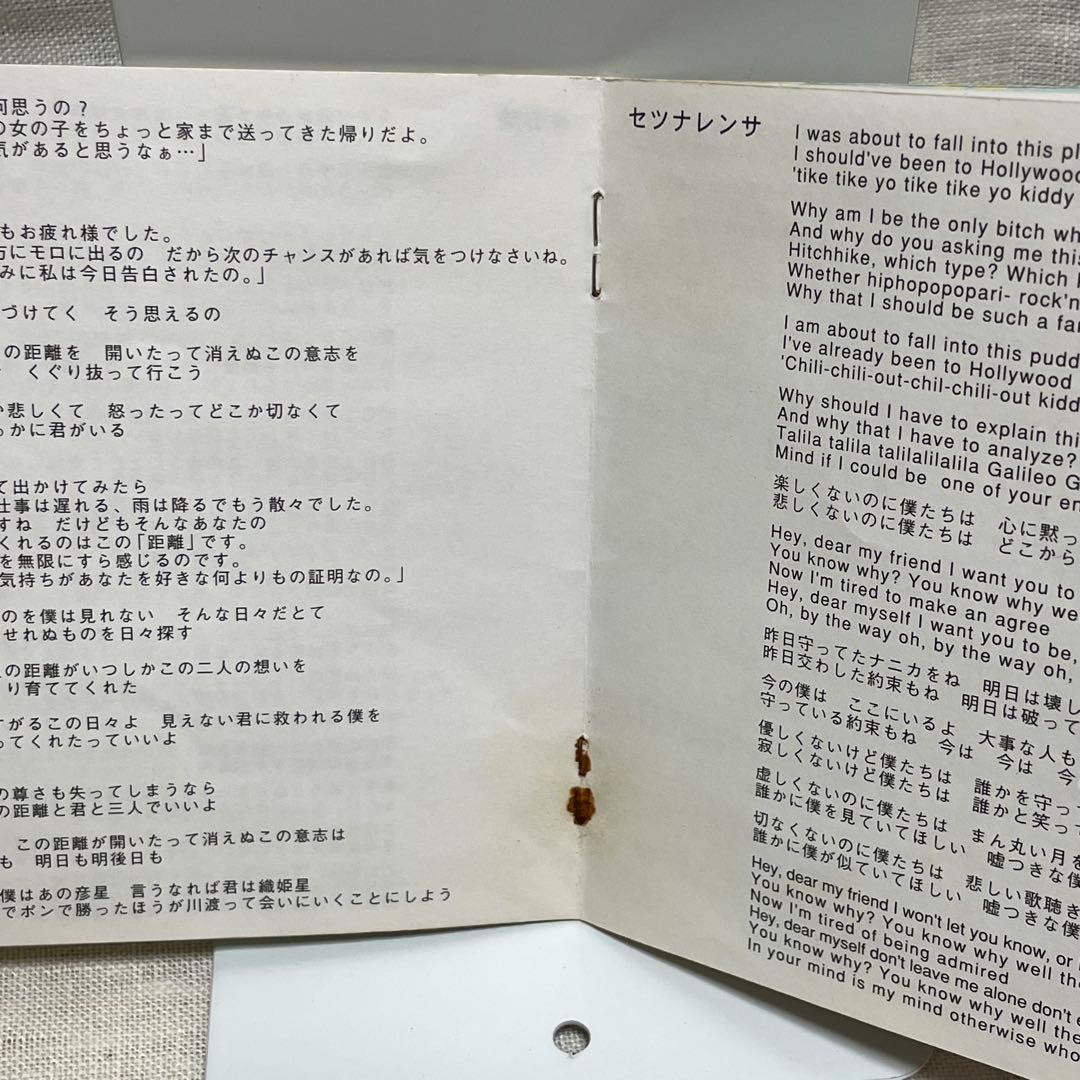 何思うの?
の女の子をちょっと家まで送ってきた帰りだよ。
気があると思うなぁ…」
もお疲れ様でした。
方にモロに出るの　だから次のチャンスがあれば気をつけなさいね。
みに私は今日告白されたの。」
づけてく　そう思えるの
の距離を　開いたって消えぬこの意志を
くぐり抜って行こう
悲しくて　怒ったってどこか切なくて
っかに君がいる
て出かけてみたら
仕事は遅れる、雨は降るでもう散々でした。
すね　だけどもそんなあなたの
くれるのはこの「距離」です。
を無限にすら感じるのです。
気持ちがあなたを好きな何よりもの証明なの。」
のを僕は見れない　そんな日々だとて
せれぬものを日々探す
の距離がいつしかこの二人の想いを
り育ててくれた
すがるこの日々よ　見えない君に救われる僕を
ってくれたっていいよ
の尊さも失ってしまうなら
の距離と君と三人でいいよ
この距離が開いたって消えぬこの意志は
も　明日も明後日も
僕はあの彦星　言うなれば君は織姫星
でポンで勝ったほうが川渡って会いにいくことにしよう
セツナレンサ
I was about to fall into this
I should've been to Hollywood
'tike tike yo tike tike yo kiddy
Why am I be the only bitch
And why do you asking me this
Hitchhike, which type? Which
Whether hiphopopopari- rock'n
Why that I should be such a
I am about to fall into this
I've already been to Hollywood
'Chili-chili-out-chil-chili-out
Why should I have to explain
And why that I have to analyze?
Talila talila talilalilalila Galileo
Mind if I could be one of your
楽しくないのに僕たちは　心に黙っ
悲しくないのに僕たちは　どこから
Hey, dear my friend I want you to
You know why? You know why
Now I'm tired to make an agree
Hey, dear myself I want you to be,
Oh, by the way oh, by the way oh,
昨日守ってたナニカをね　明日は壊し
昨日交わした約束もね　明日は破って
今の僕は　ここにいるよ　大事な人も
守っている約束もね　今は　今は　今
優しくないけど僕たちは　誰かを守っ
寂しくないけど僕たちは　誰かと笑っ
虚しくないのに僕たちは　まん丸い月を
誰かに僕を見ていてほしい　嘘つきな僕
切なくないのに僕たちは　悲しい歌聴き
誰かに僕が似ていてほしい　嘘つきな僕
Hey, dear my friend I won't let you know, or
You know why? You know why well
Now I'm tired of being admired
Hey, dear myself don't leave me alone don't
You know why? You know why well
In your mind is my mind otherwise